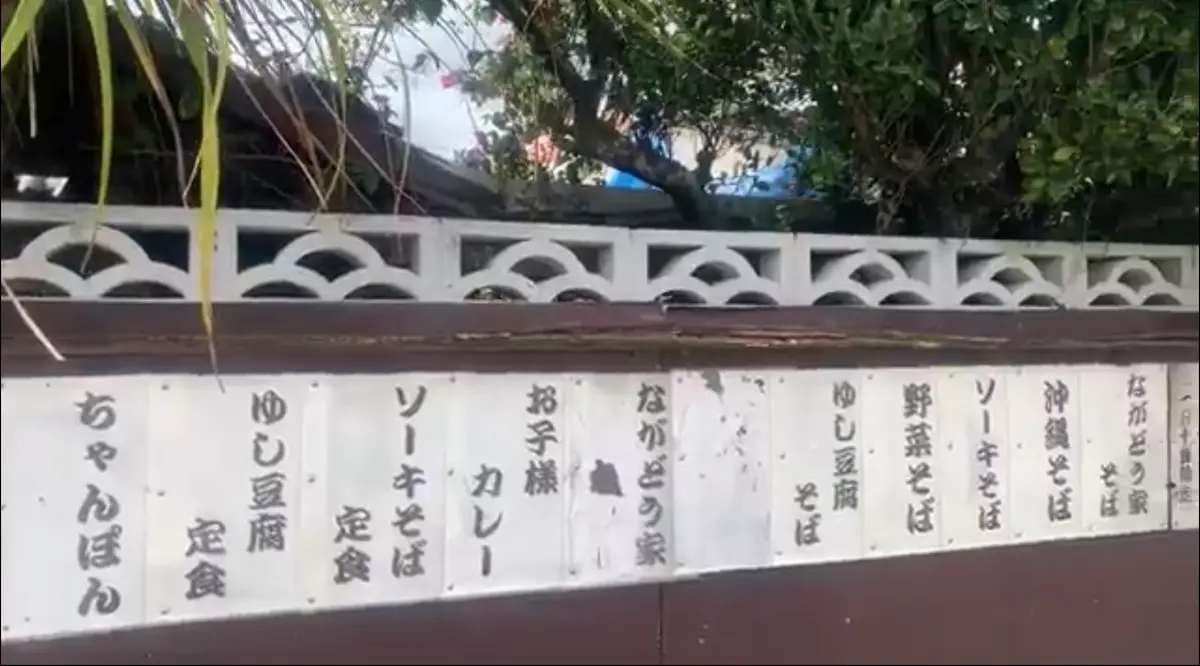 ながどう家
そば
沖縄そば
ソーキそば
野菜そば
ゆし豆腐
そば
ながどう家
お子様
カレー
ソーキそば
定食
ゆし豆腐
定食
ちゃんぽん